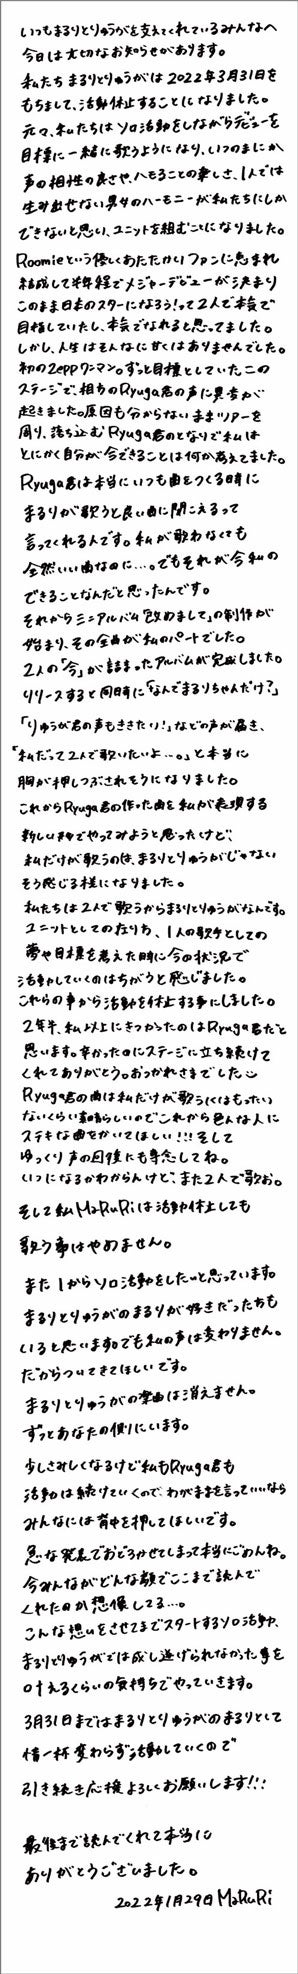 いつもまるりとりゅうがを支えてくれているみんなへ
今日は大切なお知らせがあります。
私たちまるりとりゅうがは2022年3月31日を
もちまして、活動休止することになりました。
元々、私たちはソロ活動をしながらデビューを
目標に一緒に歌うようになり、いつのまにか
声の相性の良さや、ハモることの楽しさ、1人では
生み出せない男女のハーモニーが私たちにしか
できないと思い、ユニットを組むことになりました。
Roomieという優しくあたたかいファンに恵まれ
結成して半年経でメジャーデビューが決まり
このまま日本のスターになろう!って2人で本気で
目指していたし、本気でなれると思ってました。
しかし、人生はそんなに甘くはありませんでした。
初のZeppワンマン。ずっと目標としていたこの
ステージで、相方のRyuga君の声に異変が
起きました。原因も分からないままツアーを
周り、落ち込むRyuga君のとなりで私は
とにかく自分が今できることは何か考えてました。
Ryuga君は本当にいつも曲をつくる時に
まるりが歌うと良い曲に聞こえるって
言ってくれる人です。私が歌わなくても
全然いい曲なのに…。でもそれが今私の
できることなんだと思ったんです。
それからミニアルバム「改めまして」の制作が
始まり、その全曲が私のパートでした。
2人の「今」が詰まったアルバムが完成しました。
リリースすると同時に「なんでまるりちゃんだけ?」
「りゅうが君の声もききたい!」などの声が届き、
「私だって2人で歌いたいよ…。」と本当に
胸が押しつぶされそうになりました。
これからRyuga君の作った曲を私が表現する
新しい形でやってみようと思ったけど、
私だけが歌うのは、まるりとりゅうがじゃない
そう感じる様になりました。
私たちは2人で歌うからまるりとりゅうがなんです。
ユニットとしての在り方、1人の歌手としての
夢や目標を考えた時に今の状況で
活動していくのはちがうと感じました。
これらの事から活動を休止する事にしました。
2年半、私以上にきつかったのはRyuga君だと
思います。辛かったのにステージに立ち続けて
くれてありがとう。おつかれさまでした
Ryuga君の曲は私だけが歌うにはもったい
ないくらい素晴らしいのでこれから色んな人に
ステキな曲をかいてほしい!!!そして
ゆっくり声の回復にも専念してね。
いつになるかわからんけど、また2人で歌お。
そして私MaRuRiは活動休止しても
歌う事はやめません。
また1からソロ活動をしたいと思っています。
まるりとりゅうがのまるりが好きだった方も
いると思います。でも私の声は変わりません。
だからついてきてほしいです。
まるりとりゅうがの楽曲は消えません。
ずっとあなたの側にいます。
少しさみしくなるけど私もRyuga君も
活動は続けていくので、わがままを言っていいなら
みんなには背中を押してほしいです。
急な発表でおどろかせてしまって本当にごめんね。
今みんながどんな顔でここまで読んで
くれたのか想像してる…。
こんな想いをさせてまでスタートするソロ活動、
まるりとりゅうがでは成し遂げられなかった事を
叶えるくらいの気持ちでやっていきます。
3月31日まではまるりとりゅうがのまるりとして
精一杯変わらず活動していくので
引き続き応援よろしくお願いします!!!
最後まで読んでくれて本当に
ありがとうございました。
2022年1月29日 MaRuRi